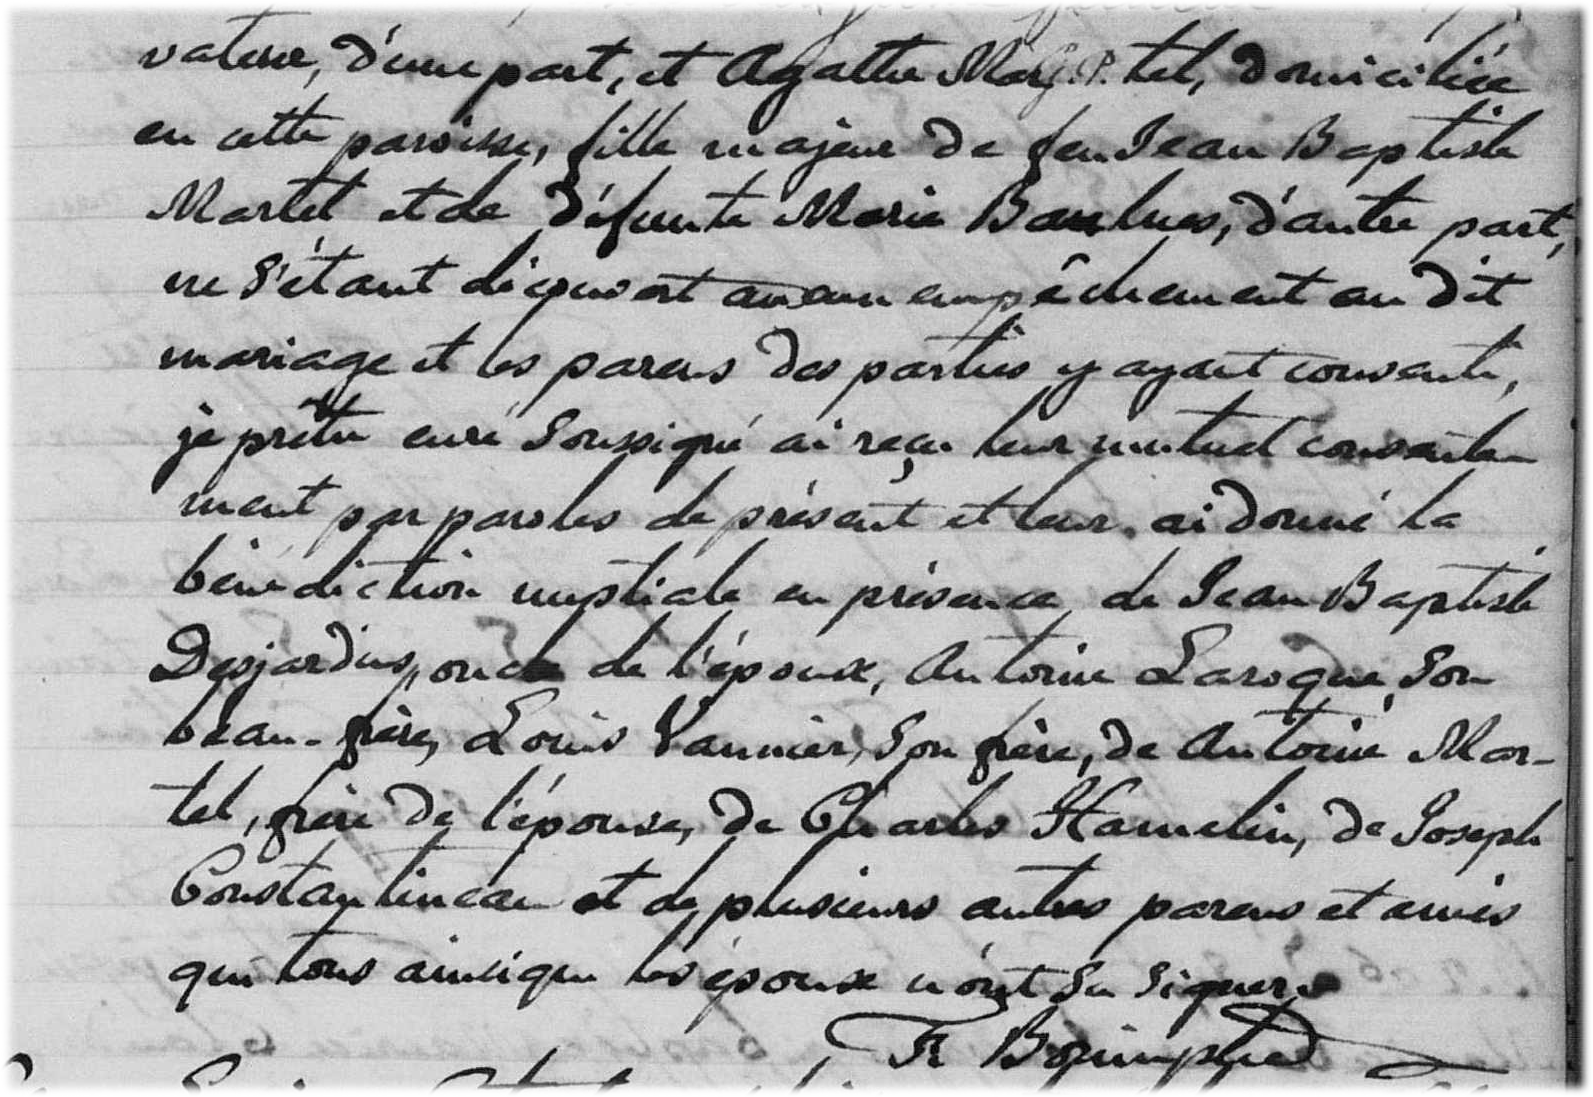 vateur, d'une part, et Agathe Martel, domiciliée
en cette paroisse, fille majeure de feu Jean Baptiste
Martel et de défunte Marie, d'autre part,
ne s'étant découvert aucun empêchement au dit
mariage et les parens des parties y ayant consenti,
je prêtre curé soussigné ai reçu leur mutuel consente
ment par paroles de présent et leur ai donné la
bénédiction nuptiale en présence de Jean Baptiste
Desjardins, oncle de l'époux, Antoine Laroque, son
beau-frère, Louis Vannier, son frère, de Antoine Mar-
tel, frère de l'épouse, de Charles Hamelin, de Joseph
Constantineau et de plusieurs autres parens et amis
qui tous ainsi que les époux n'ont su signer